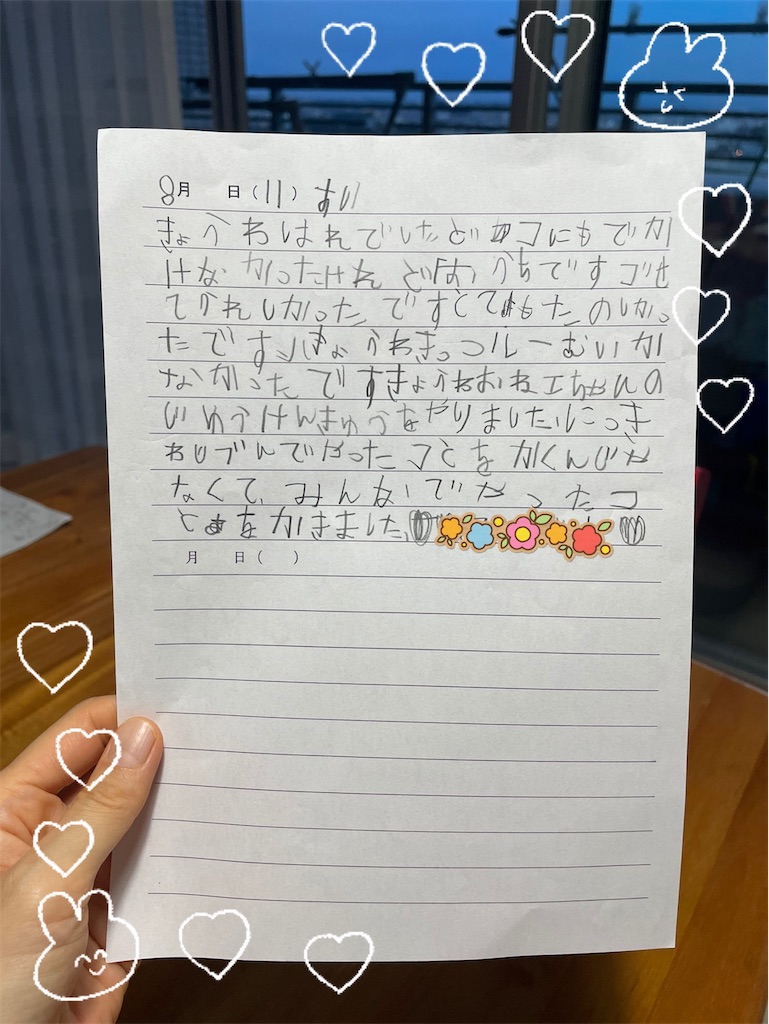 8月 日(11)すい
きょうわはれでしたどコにもでか
けなかったけれどおうちですゴせ
てうれしかったですとてもたのしかっ
たですきょうわきっコルーむいか
なかったですきょうわおねエちゃんの
じゆうけんきゅうをやりましたにっき
わじブんでやったコとをかくんじゃ
なくて、みんなでやったコ
とをかきました
月 日( )